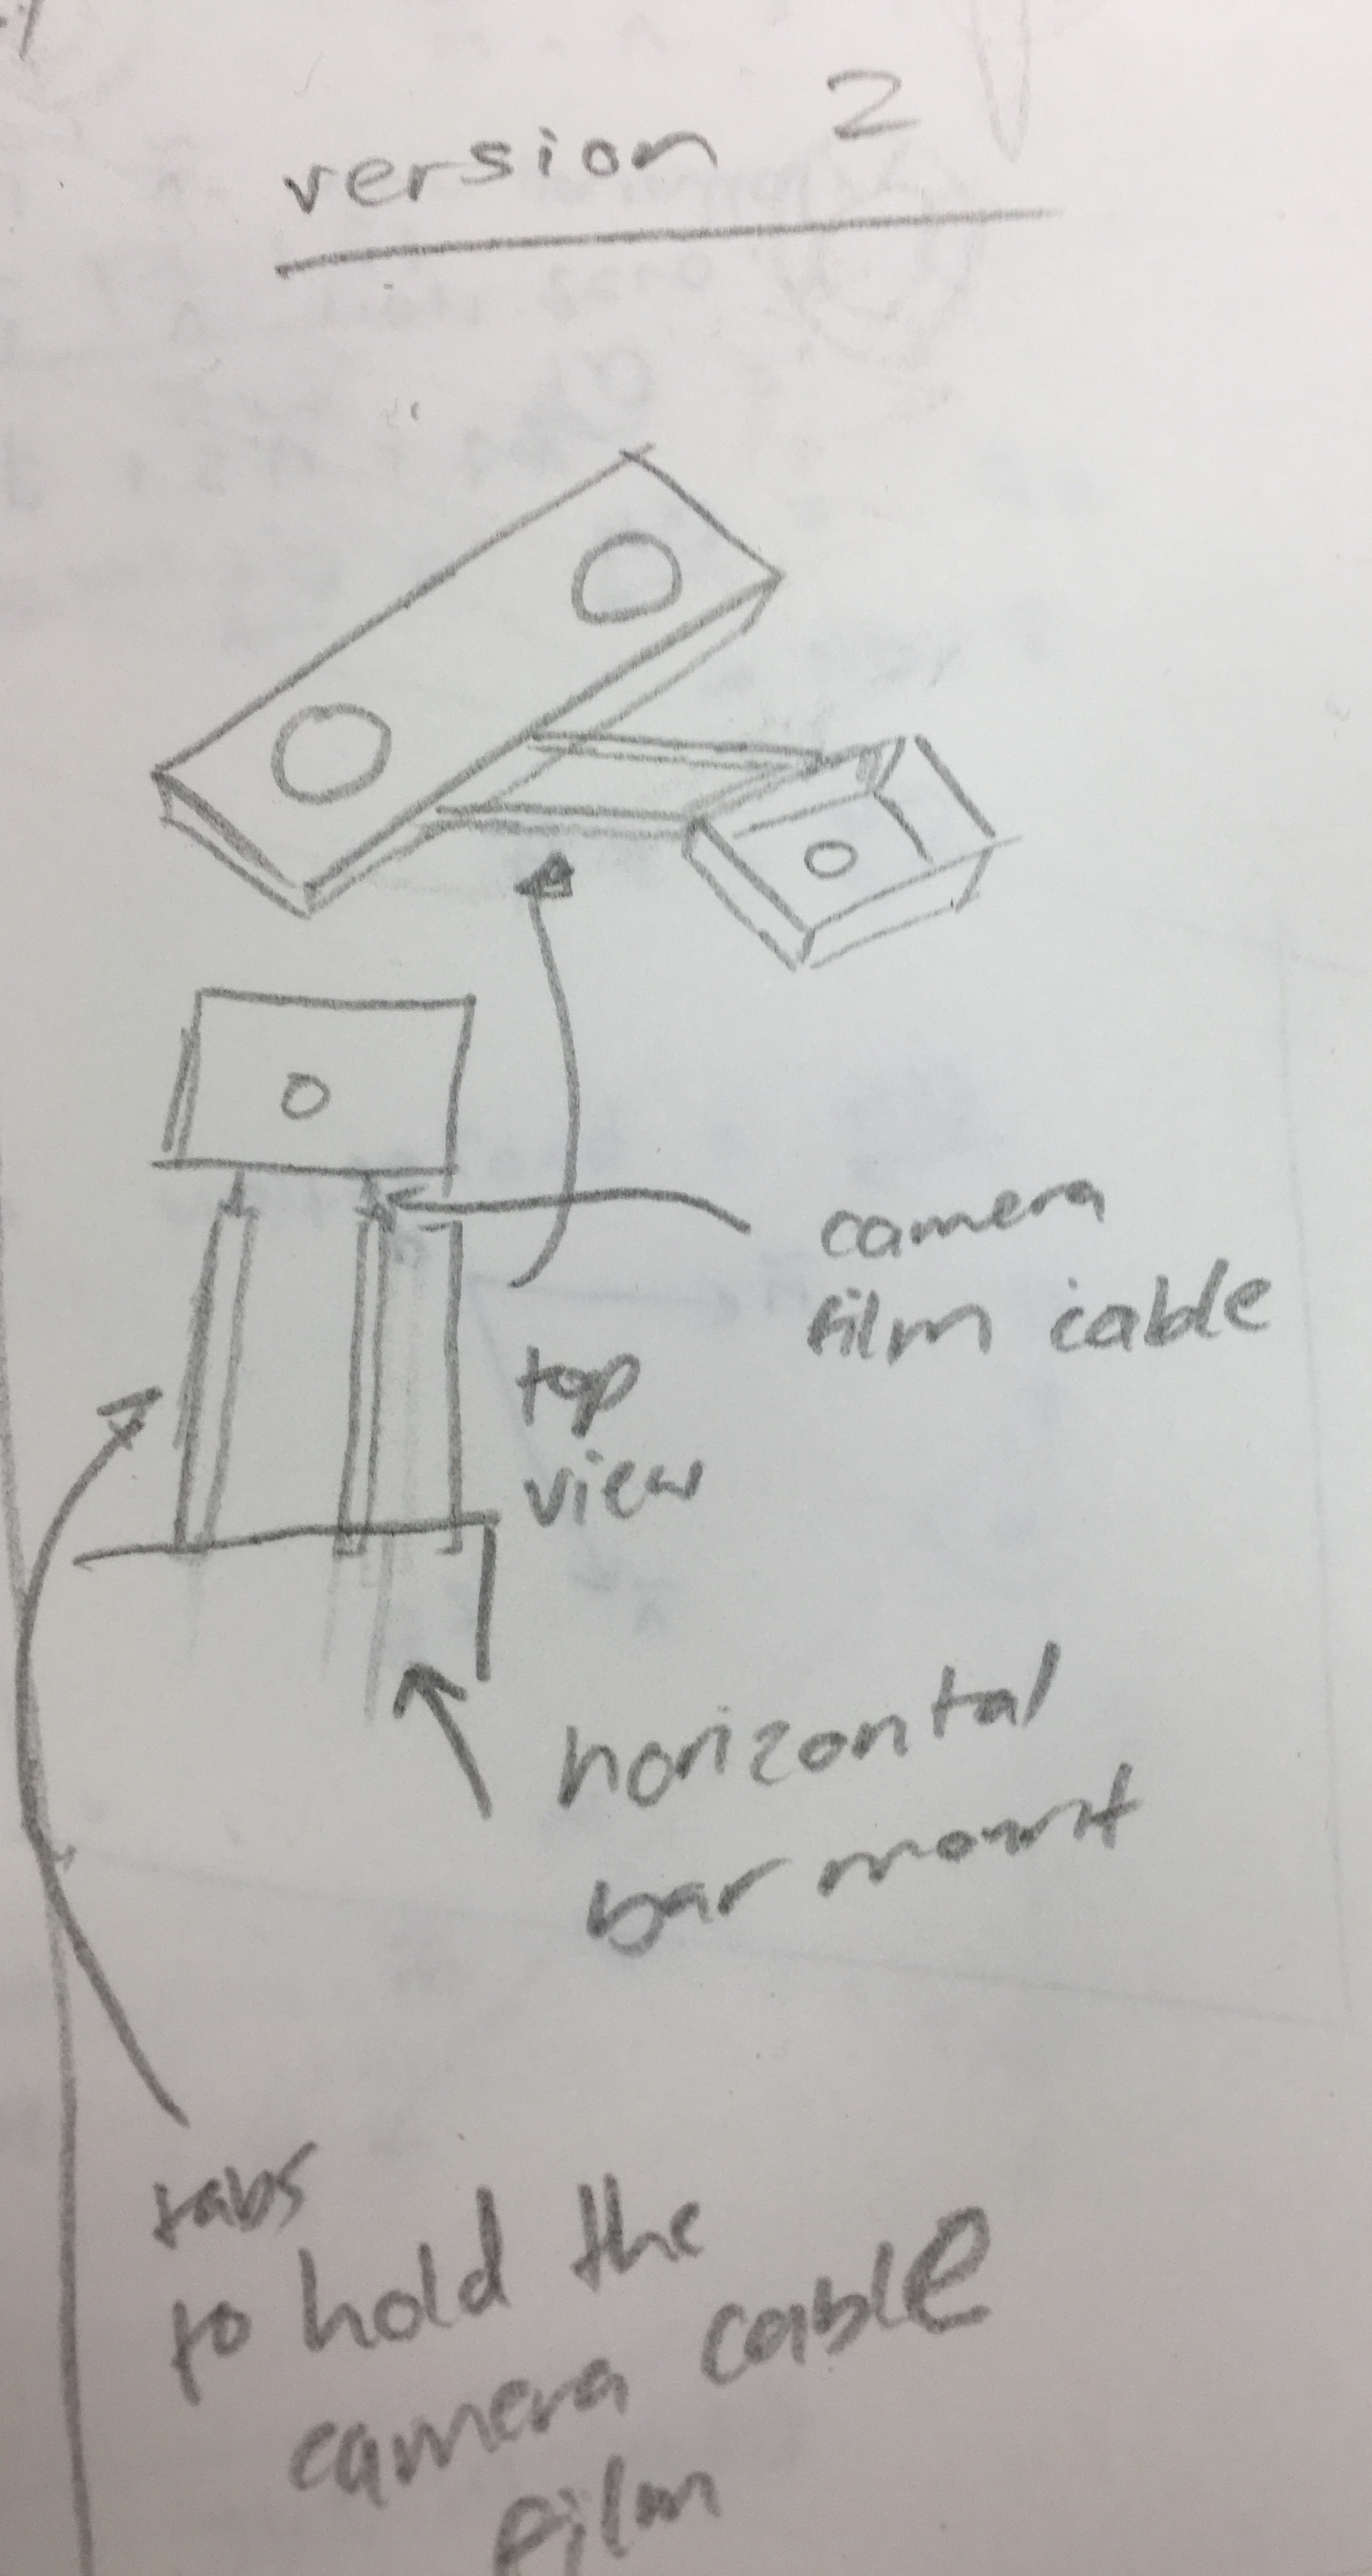 version 2
camera
film cable
top
view
horizontal
bar mount
tabs
to hold the
camera cable
film